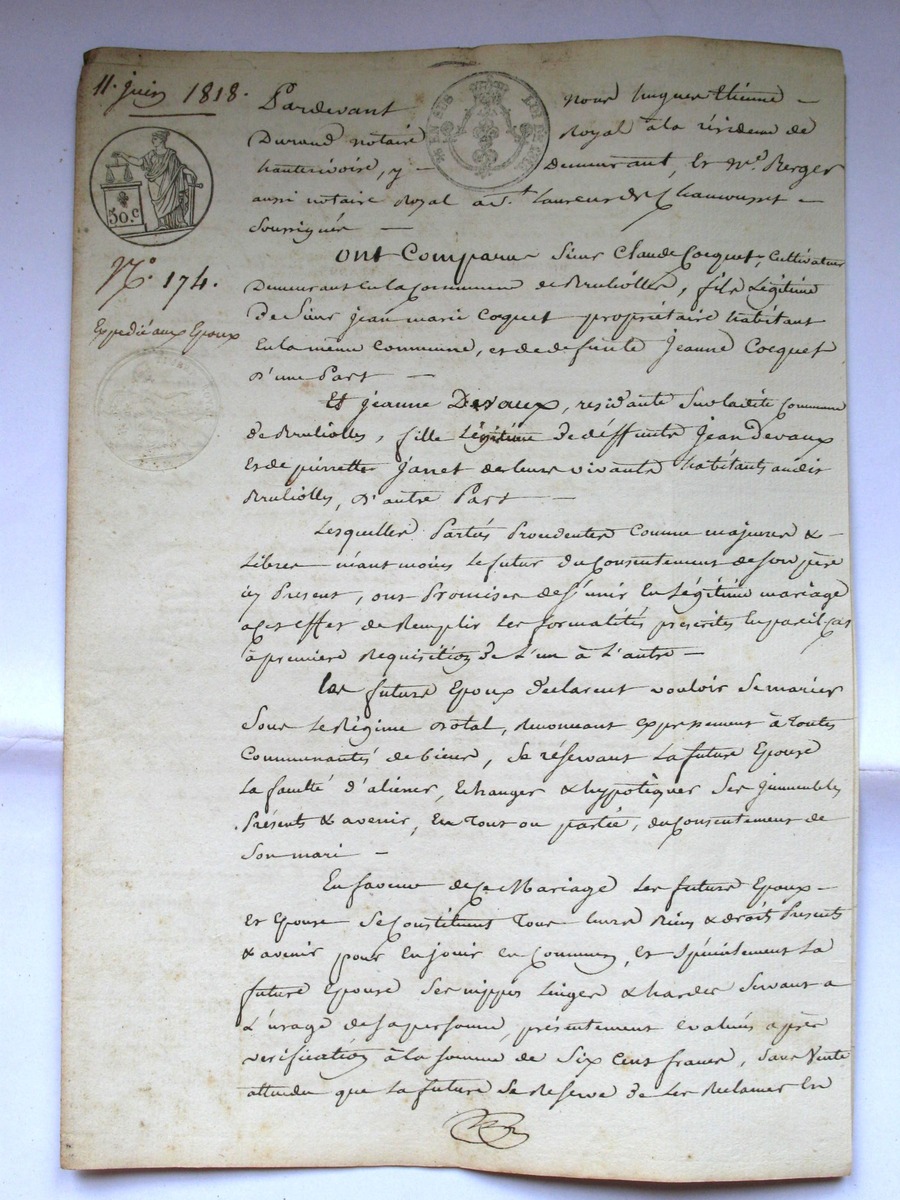 11. juin 1818.
50.c
N.o 174.
Expedié aux Epoux
Pardevant Nous hugues Etienne
Durand notaire Royal à la résidence de
hauterivoire, y Demeurant, Et M.e Berger
aussi notaire Royal a S.t Laurent de Chamousset
Soussignés
ont Comparu Sieur Claude Cocquet, Cultivateur
Demeurant En la Commune de Brulliolles, fils Légitime
De Sieur Jean marie Coquet propriétaire habitant
En la même Commune, et de deffunte Jeanne Cocquet
d'une Part
Et Jeanne Devaux, residante Sur la dite Commune
de Brulliolles, fille Légitime de déffunts Jean Devaux
Et de pierrette Jarret de leurs vivants habitants audit
Brulliolles, d'autre Part
Lesquelles Parties Procédentes comme majeures &
Libres néantmoins Le futur du Consentement de Son père
icy Present, ont Promises de S'unir En Légitime mariage
a Cet Effet de Remplir Les formalités prescrites En pareil cas
à premiere Requisition de L'un à L'autre
Les futurs Epoux déclarent vouloir Se marier
Sous Le Régime dotal, Renonçant expressement à toutes
Communautés de biens, Se réservant La future Epouse
La faculté d'aliener, Echanger & hypotèquer Ses immeubles
Présents & avenir, En Tout ou partie, du Consentement de
Son mari
En faveur de Ce Mariage Les futurs Epoux
Et Epouse Se Constituent Tous leurs Biens & droits Presents
& avenir pour En jouir en Commun, Et Spécialement La
future Epouse Ses nippes Linges & hardes Servant a
L'usage de Sa personne, présentement évalués après
vérification à la Somme de Six Cent francs, Sans Vente
attendu que La future Se Reserve de Les Reclamer En